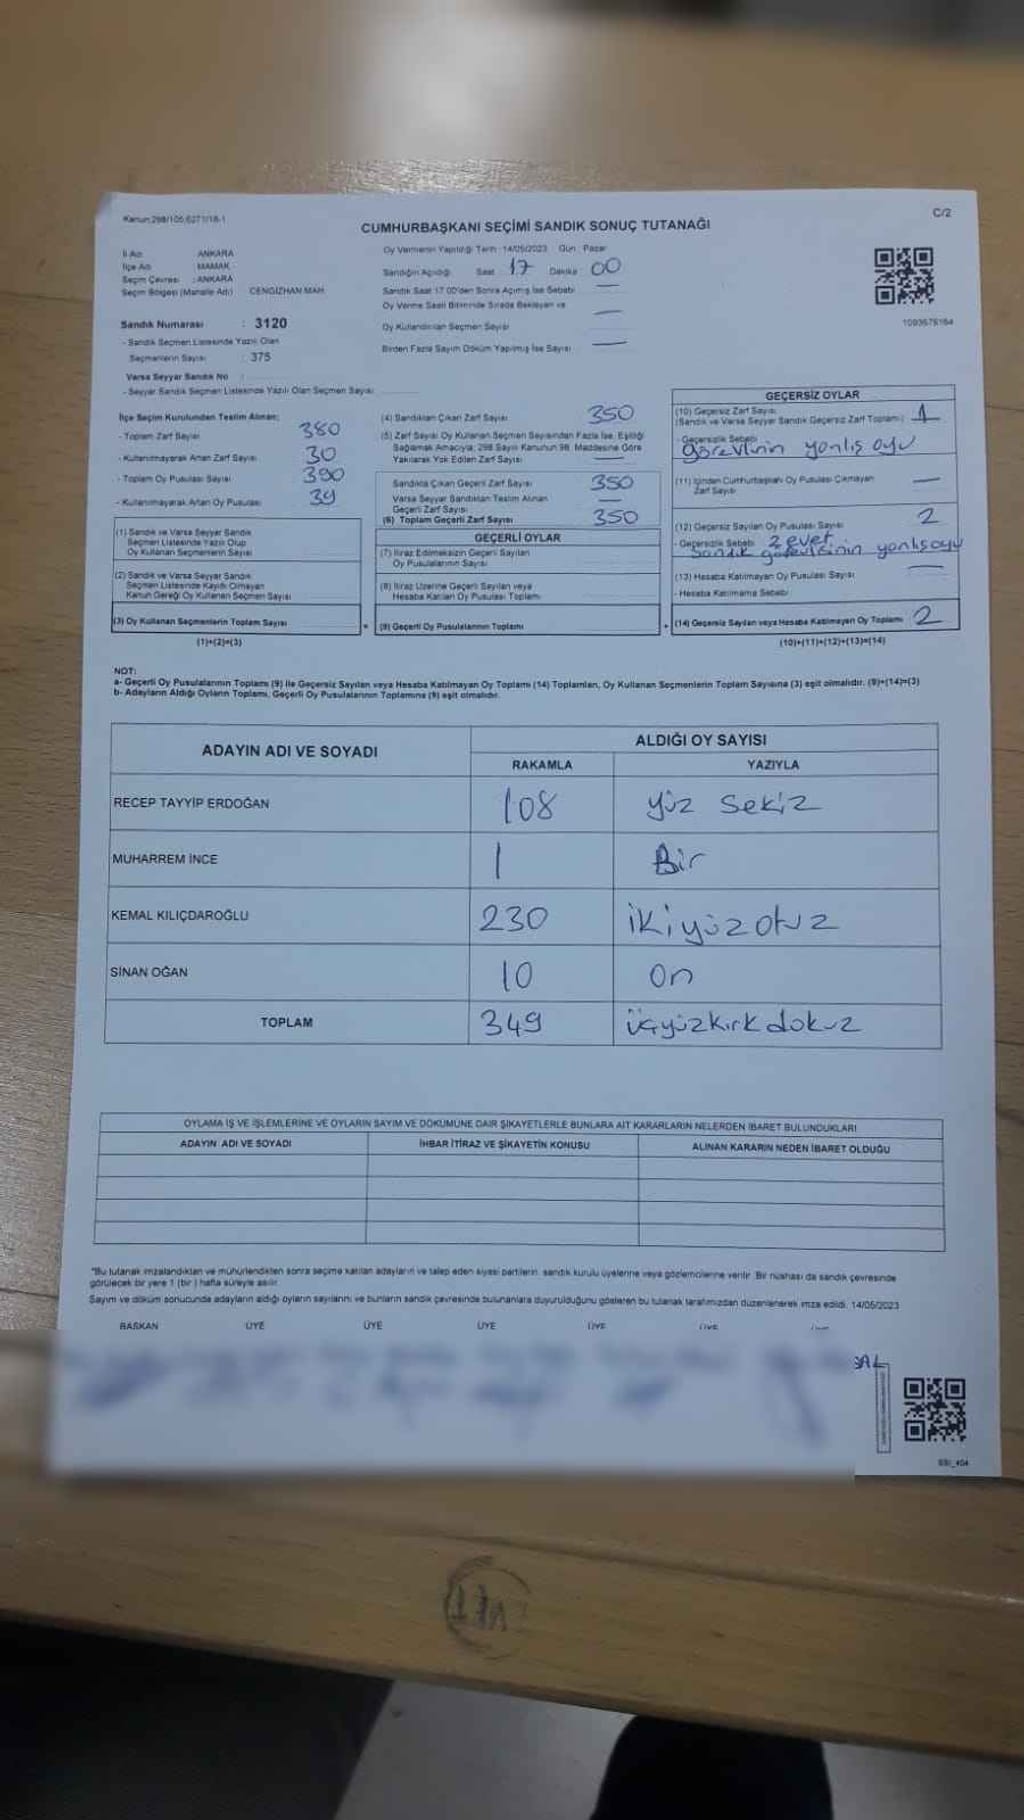 Kanun:298/105;6271/18-1
C/2
CUMHURBAŞKANI SEÇİMİ SANDIK SONUÇ TUTANAĞI
İl Adı : ANKARA
İlçe Adı : MAMAK
Seçim Çevresi : ANKARA
Seçim Bölgesi (Mahalle Adı) : CENGİZHAN MAH.
Sandık Numarası : 3120
- Sandık Seçmen Listesinde Yazılı Olan
Seçmenlerin Sayısı : 375
Varsa Seyyar Sandık No :
- Seyyar Sandık Seçmen Listesinde Yazılı Olan Seçmen Sayısı :
Oy Vermenin Yapıldığı Tarih : 14/05/2023 Gün : Pazar
Sandığın Açıldığı Saat 17 Dakika 00
Sandık Saat 17.00'den Sonra Açılmış İse Sebebi —
Oy Verme Saati Bitiminde Sırada Bekleyen ve
Oy Kullandırılan Seçmen Sayısı —
Birden Fazla Sayım Döküm Yapılmış İse Sayısı —
1093676164
İlçe Seçim Kurulundan Teslim Alınan;
- Toplam Zarf Sayısı 380
- Kullanılmayarak Artan Zarf Sayısı 30
- Toplam Oy Pusulası Sayısı 390
- Kullanılmayarak Artan Oy Pusulası 39
(1) Sandık ve Varsa Seyyar Sandık
Seçmen Listesinde Yazılı Olup
Oy Kullanan Seçmenlerin Sayısı
(2) Sandık ve Varsa Seyyar Sandık
Seçmen Listesinde Kayıtlı Olmayan
Kanun Gereği Oy Kullanan Seçmen Sayısı
(3) Oy Kullanan Seçmenlerin Toplam Sayısı
(1)+(2)=(3)
(4) Sandıktan Çıkan Zarf Sayısı 350
(5) Zarf Sayısı Oy Kullanan Seçmen Sayısından Fazla İse, Eşitliği
Sağlamak Amacıyla; 298 Sayılı Kanunun 98. Maddesine Göre
Yakılarak Yok Edilen Zarf Sayısı —
Sandıkta Çıkan Geçerli Zarf Sayısı 350
Varsa Seyyar Sandıktan Teslim Alınan
Geçerli Zarf Sayısı —
(6) Toplam Geçerli Zarf Sayısı 350
GEÇERLİ OYLAR
(7) İtiraz Edilmeksizin Geçerli Sayılan
Oy Pusulalarının Sayısı
(8) İtiraz Üzerine Geçerli Sayılan veya
Hesaba Katılan Oy Pusulası Toplamı
= (9) Geçerli Oy Pusulalarının Toplamı
GEÇERSİZ OYLAR
(10) Geçersiz Zarf Sayısı
(Sandık ve Varsa Seyyar Sandık Geçersiz Zarf Toplamı) 1
- Geçersizlik Sebebi
görevlinin yanlış oyu
(11) İçinden Cumhurbaşkanı Oy Pusulası Çıkmayan
Zarf Sayısı —
(12) Geçersiz Sayılan Oy Pusulası Sayısı 2
- Geçersizlik Sebebi 2 evet
sandık görevlisinin yanlış oyu
(13) Hesaba Katılmayan Oy Pusulası Sayısı —
- Hesaba Katılmama Sebebi
+ (14) Geçersiz Sayılan veya Hesaba Katılmayan Oy Toplamı 2
(10)+(11)+(12)+(13)=(14)
NOT:
a- Geçerli Oy Pusulalarının Toplamı (9) ile Geçersiz Sayılan veya Hesaba Katılmayan Oy Toplamı (14) Toplamları, Oy Kullanan Seçmenlerin Toplam Sayısına (3) eşit olmalıdır. (9)+(14)=(3)
b- Adayların Aldığı Oyların Toplamı, Geçerli Oy Pusulalarının Toplamına (9) eşit olmalıdır.
ADAYIN ADI VE SOYADI
ALDIĞI OY SAYISI
RAKAMLA YAZIYLA
RECEP TAYYİP ERDOĞAN 108 yüz sekiz
MUHARREM İNCE 1 Bir
KEMAL KILIÇDAROĞLU 230 ikiyüzotuz
SİNAN OĞAN 10 on
TOPLAM 349 üçyüzkırkdokuz
OYLAMA İŞ VE İŞLEMLERİNE VE OYLARIN SAYIM VE DÖKÜMÜNE DAİR ŞİKAYETLERLE BUNLARA AİT KARARLARIN NELERDEN İBARET BULUNDUKLARI
ADAYIN ADI VE SOYADI İHBAR İTİRAZ VE ŞİKAYETİN KONUSU ALINAN KARARIN NEDEN İBARET OLDUĞU
*Bu tutanak imzalandıktan ve mühürlendikten sonra seçime katılan adayların ve talep eden siyasi partilerin, sandık kurulu üyelerine veya gözlemcilerine verilir. Bir nüshası da sandık çevresinde
görülecek bir yere 1 (bir) hafta süreyle asılır.
Sayım ve döküm sonucunda adayların aldığı oyların sayılarını ve bunların sandık çevresinde bulunanlara duyurulduğunu gösteren bu tutanak tarafımızdan düzenlenerek imza edildi. 14/05/2023
BAŞKAN ÜYE ÜYE ÜYE ÜYE ÜYE